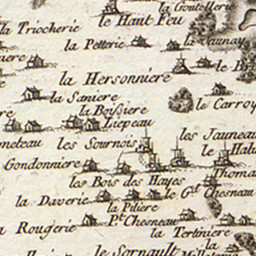 la Goutellerie
le Haut Feu
la Triocherie
la Petterie
la Jaunay
niere
la Hersonniere
le B
la Saniere
le Carroy
la Boissiere
Liepeau
meteau
les Sournois
les Jauneau
le Halu
Gondonniere
Thoma
les Bois des Hayes
la Daverie
le Gd. Chesneau
la Piliere
Pt. Chesneau
la Rougerie
la Tertiniere
la
le Sornault